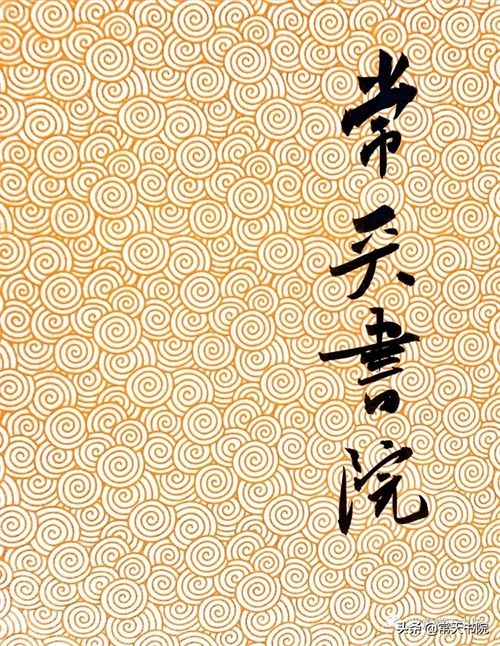 常天书院
头条 @常天书院